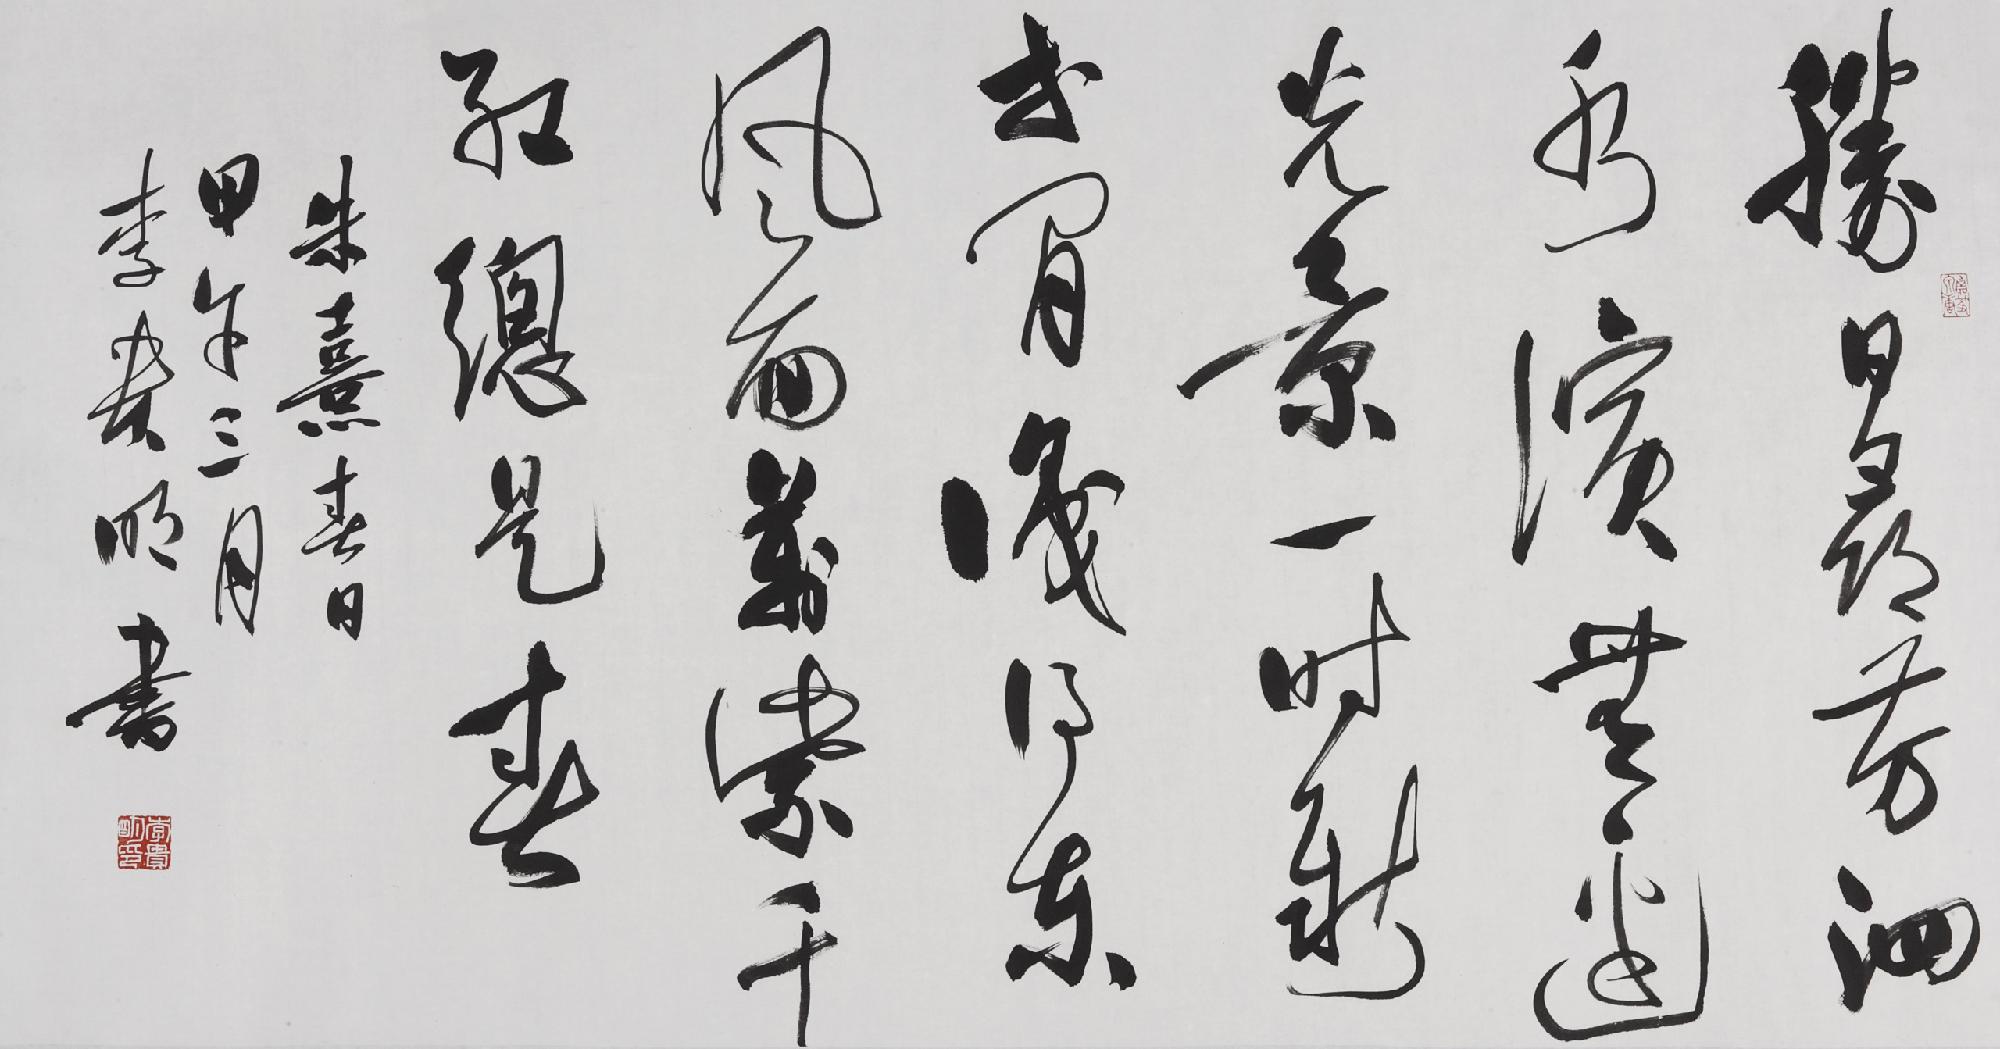 勝日尋芳泗
水濱無邊
光景一時新
等閒識得東
風面萬紫千
紅總是春
朱熹春日
甲午三月
李貴明書
李貴明印